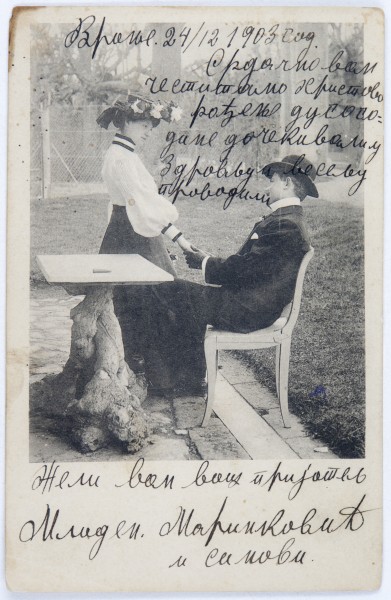 Врање. 24/12 1903 год.
Срдачно вам
честитамо христово
рођење дусого-
дане дочекивали у
здрављу а весељу
проводили
Жели вам ваш пријатељ
Младен. Маринковић
и синови.